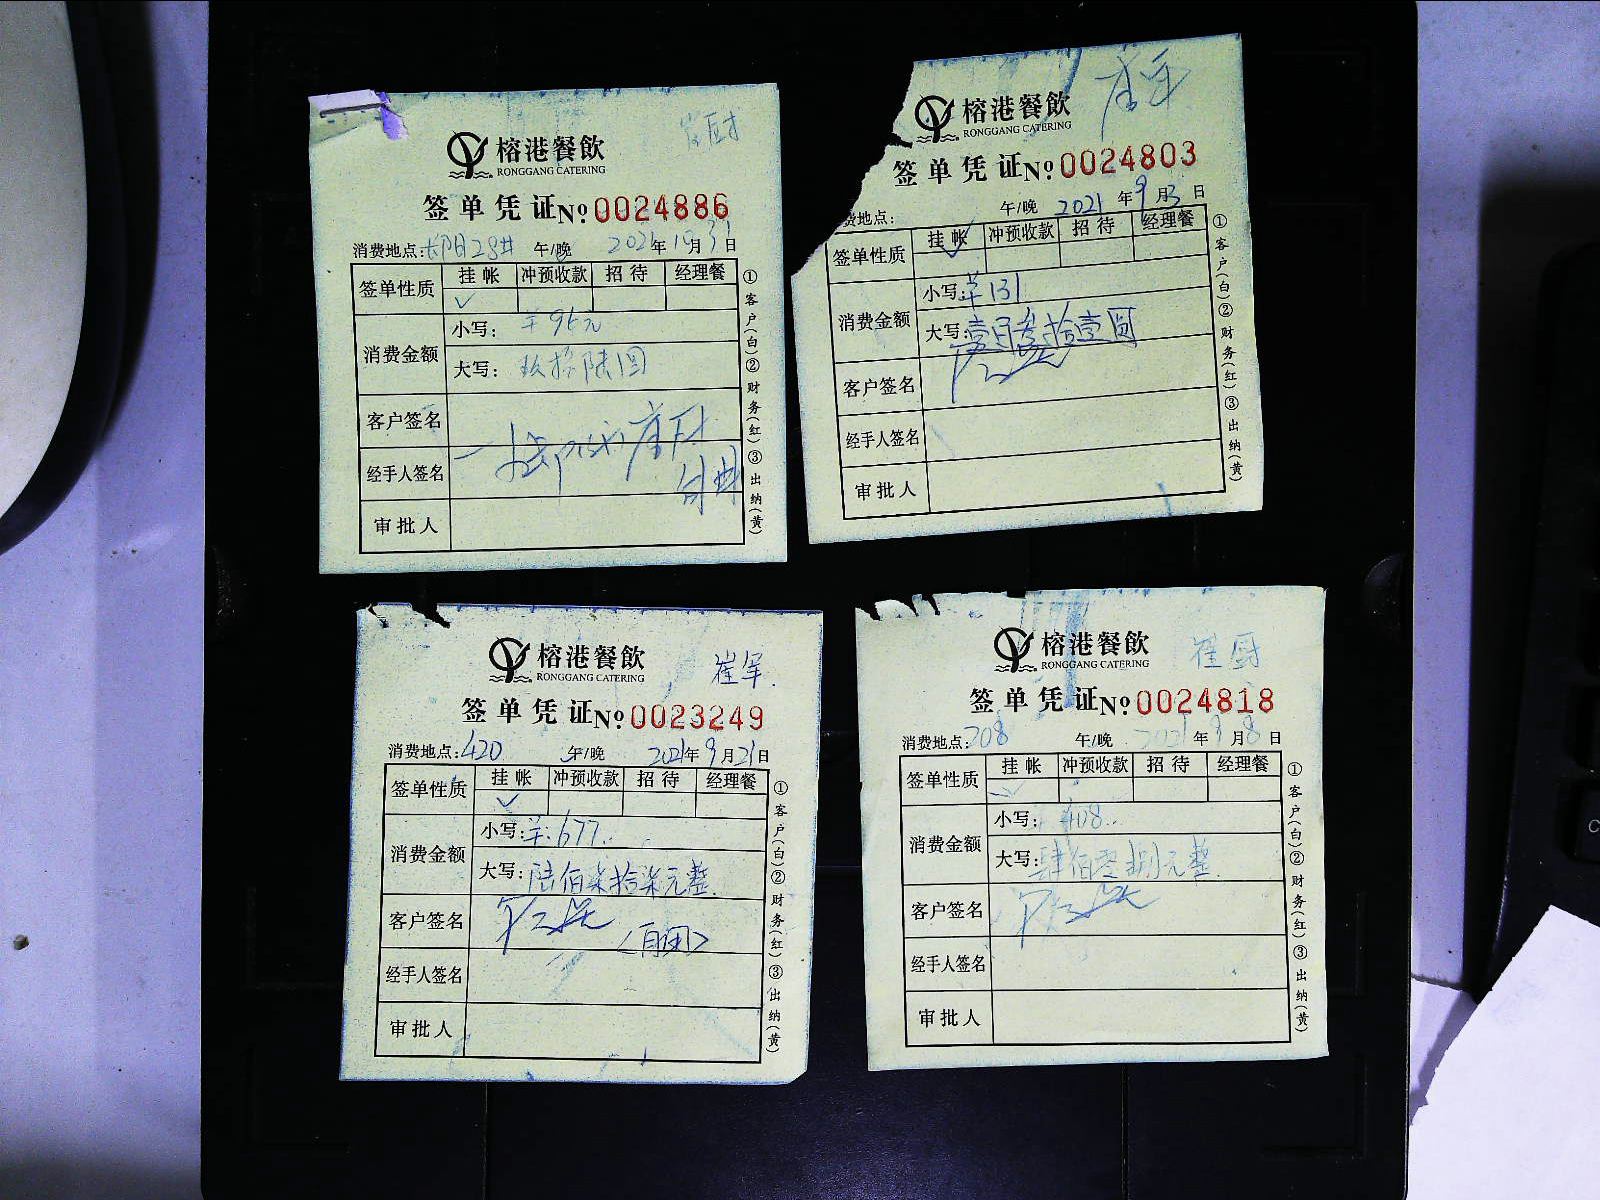 榕港餐飲
RONGGANG CATERING
签单凭证 No 0024886
消费地点: 午/晚 2021年10月31日
签单性质 挂帐 冲预收款 招待 经理餐
✓
消费金额 小写: 羊96元
大写: 玖拾陆圆
客户签名
经手人签名
审批人
①客户(白)②财务(红)③出纳(黄)
榕港餐飲
RONGGANG CATERING
签单凭证 No 0024803
费地点: 午/晚 2021年9月3日
签单性质 挂帐 冲预收款 招待 经理餐
✓
消费金额 小写: 羊131
大写: 壹百叁拾壹圆
客户签名
经手人签名
审批人
①客户(白)②财务(红)③出纳(黄)
榕港餐飲 崔军
RONGGANG CATERING
签单凭证 No 0023249
消费地点: 420 午/晚 2021年9月21日
签单性质 挂帐 冲预收款 招待 经理餐
✓
消费金额 小写: 羊:677.
大写: 陆佰柒拾柒元整
客户签名
经手人签名
审批人
①客户(白)②财务(红)③出纳(黄)
榕港餐飲 崔厨
RONGGANG CATERING
签单凭证 No 0024818
消费地点: 708 午/晚 2021年9月8日
签单性质 挂帐 冲预收款 招待 经理餐
✓
消费金额 小写: 408..
大写: 肆佰零捌元整
客户签名
经手人签名
审批人
①客户(白)②财务(红)③出纳(黄)